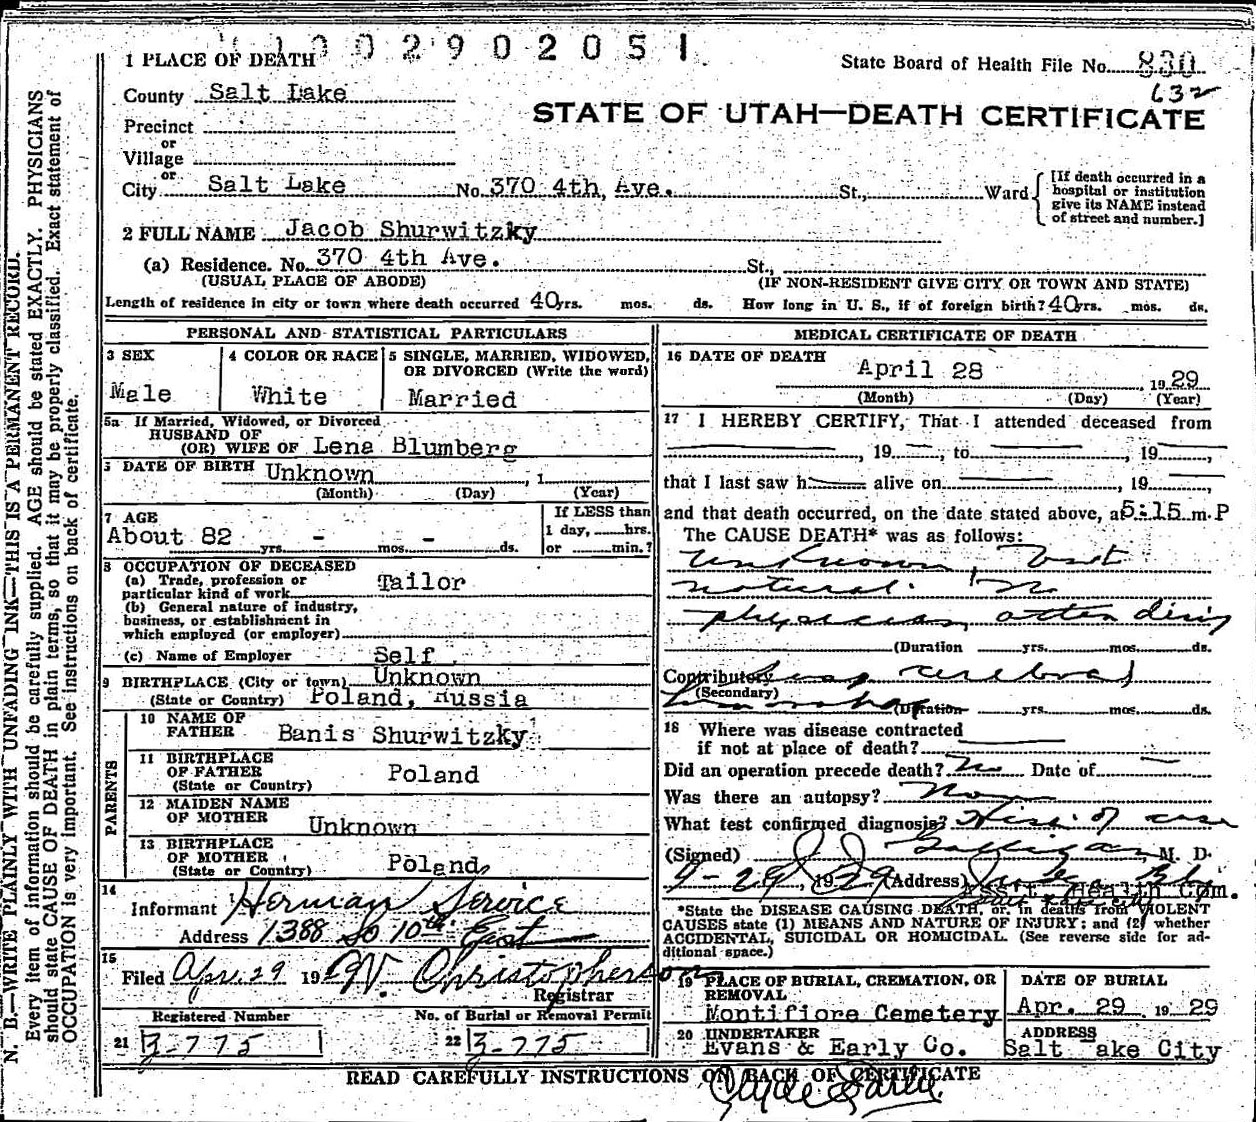 1002902051
1 PLACE OF DEATH
State Board of Health File No. 830
632
County Salt Lake
STATE OF UTAH—DEATH CERTIFICATE
Precinct
or
Village
or
City Salt Lake No. 370 4th Ave. St., Ward
[If death occurred in a
hospital or institution
give its NAME instead
of street and number.]
2 FULL NAME Jacob Shurwitzky
(a) Residence. No. 370 4th Ave. St.,
(USUAL PLACE OF ABODE) (IF NON-RESIDENT GIVE CITY OR TOWN AND STATE)
Length of residence in city or town where death occurred 40 yrs. mos. ds. How long in U. S., if of foreign birth? 40 yrs. mos. ds.
PERSONAL AND STATISTICAL PARTICULARS
3 SEX
Male
4 COLOR OR RACE
White
5 SINGLE, MARRIED, WIDOWED,
OR DIVORCED (Write the word)
Married
5a If Married, Widowed, or Divorced
HUSBAND OF
(OR) WIFE OF Lena Blumberg
DATE OF BIRTH Unknown , 1
(Month) (Day) (Year)
7 AGE
About 82 - -
yrs. mos. ds.
If LESS than
1 day, hrs.
or min.?
8 OCCUPATION OF DECEASED
(a) Trade, profession or
particular kind of work Tailor
(b) General nature of industry,
business, or establishment in
which employed (or employer)
(c) Name of Employer Self
9 BIRTHPLACE (City or town) Unknown
(State or Country) Poland, Russia
PARENTS
10 NAME OF
FATHER Banis Shurwitzky
11 BIRTHPLACE
OF FATHER Poland
(State or Country)
12 MAIDEN NAME
OF MOTHER
Unknown
13 BIRTHPLACE
OF MOTHER Poland
(State or Country)
14
Informant Herman Service
Address 1388 So 10th East
15
Filed Apr. 29 1929 W. Christopherson
Registrar
Registered Number
21 B-775
No. of Burial or Removal Permit
22 B-775
MEDICAL CERTIFICATE OF DEATH
16 DATE OF DEATH
April 28 , 1929
(Month) (Day) (Year)
17 I HEREBY CERTIFY, That I attended deceased from
, 19 , to , 19 ,
that I last saw h alive on , 19 ,
and that death occurred, on the date stated above, at 5:15 m. P
The CAUSE DEATH* was as follows:
unknown, but
natural. No
physician attending
(Duration yrs. mos. ds.
Contributory cerebral
(Secondary) (Duration yrs. mos. ds.
18 Where was disease contracted
if not at place of death?
Did an operation precede death? No Date of
Was there an autopsy? No
What test confirmed diagnosis? Hist. of case
(Signed) M. D.
4-29, 1929 (Address)
Ass't Health Com.
*State the DISEASE CAUSING DEATH, or, in deaths from VIOLENT
CAUSES state (1) MEANS AND NATURE OF INJURY; and (2) whether
ACCIDENTAL, SUICIDAL OR HOMICIDAL. (See reverse side for ad-
ditional space.)
19 PLACE OF BURIAL, CREMATION, OR
REMOVAL
Montifiore Cemetery
DATE OF BURIAL
Apr. 29 1929
20 UNDERTAKER
Evans & Early Co.
ADDRESS
Salt Lake City
READ CAREFULLY INSTRUCTIONS ON BACK OF CERTIFICATE
Clyde Early
N. B.—WRITE PLAINLY WITH UNFADING INK—THIS IS A PERMANENT RECORD.
Every item of information should be carefully supplied. AGE should be stated EXACTLY. PHYSICIANS
should state CAUSE OF DEATH in plain terms, so that it may be properly classified. Exact statement of
OCCUPATION is very important. See instructions on back of certificate.